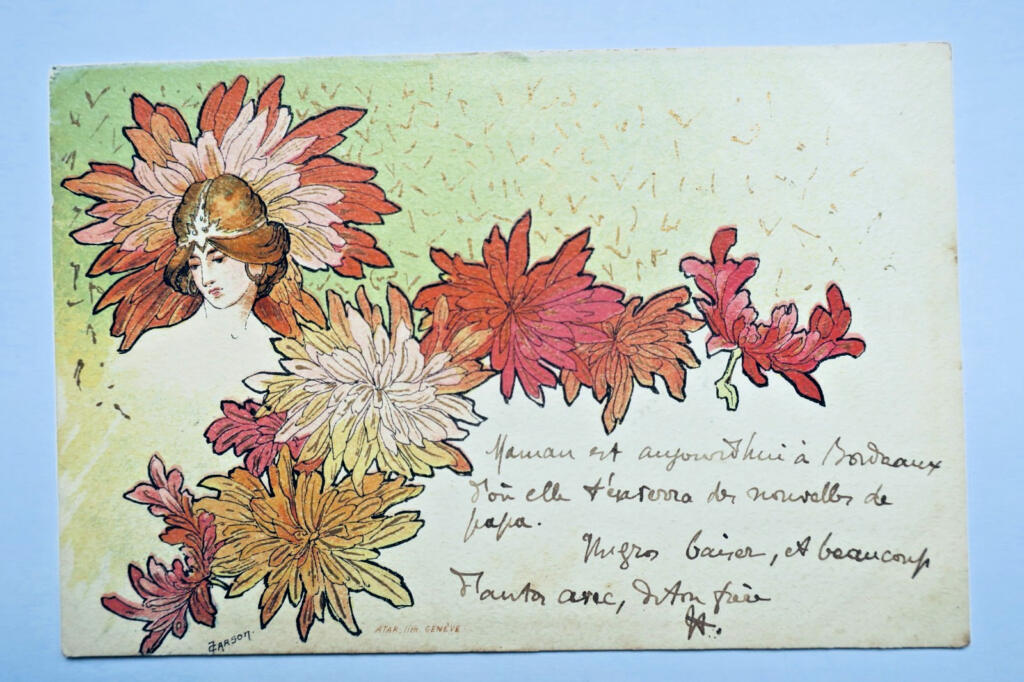 Maman est aujourd'hui à Bordeaux
d'où elle t'enverra des nouvelles de
papa.
Un gros baiser, et beaucoup
d'autres avec, de ton frère
H.
CARSON.
ATAR, lith. GENÈVE